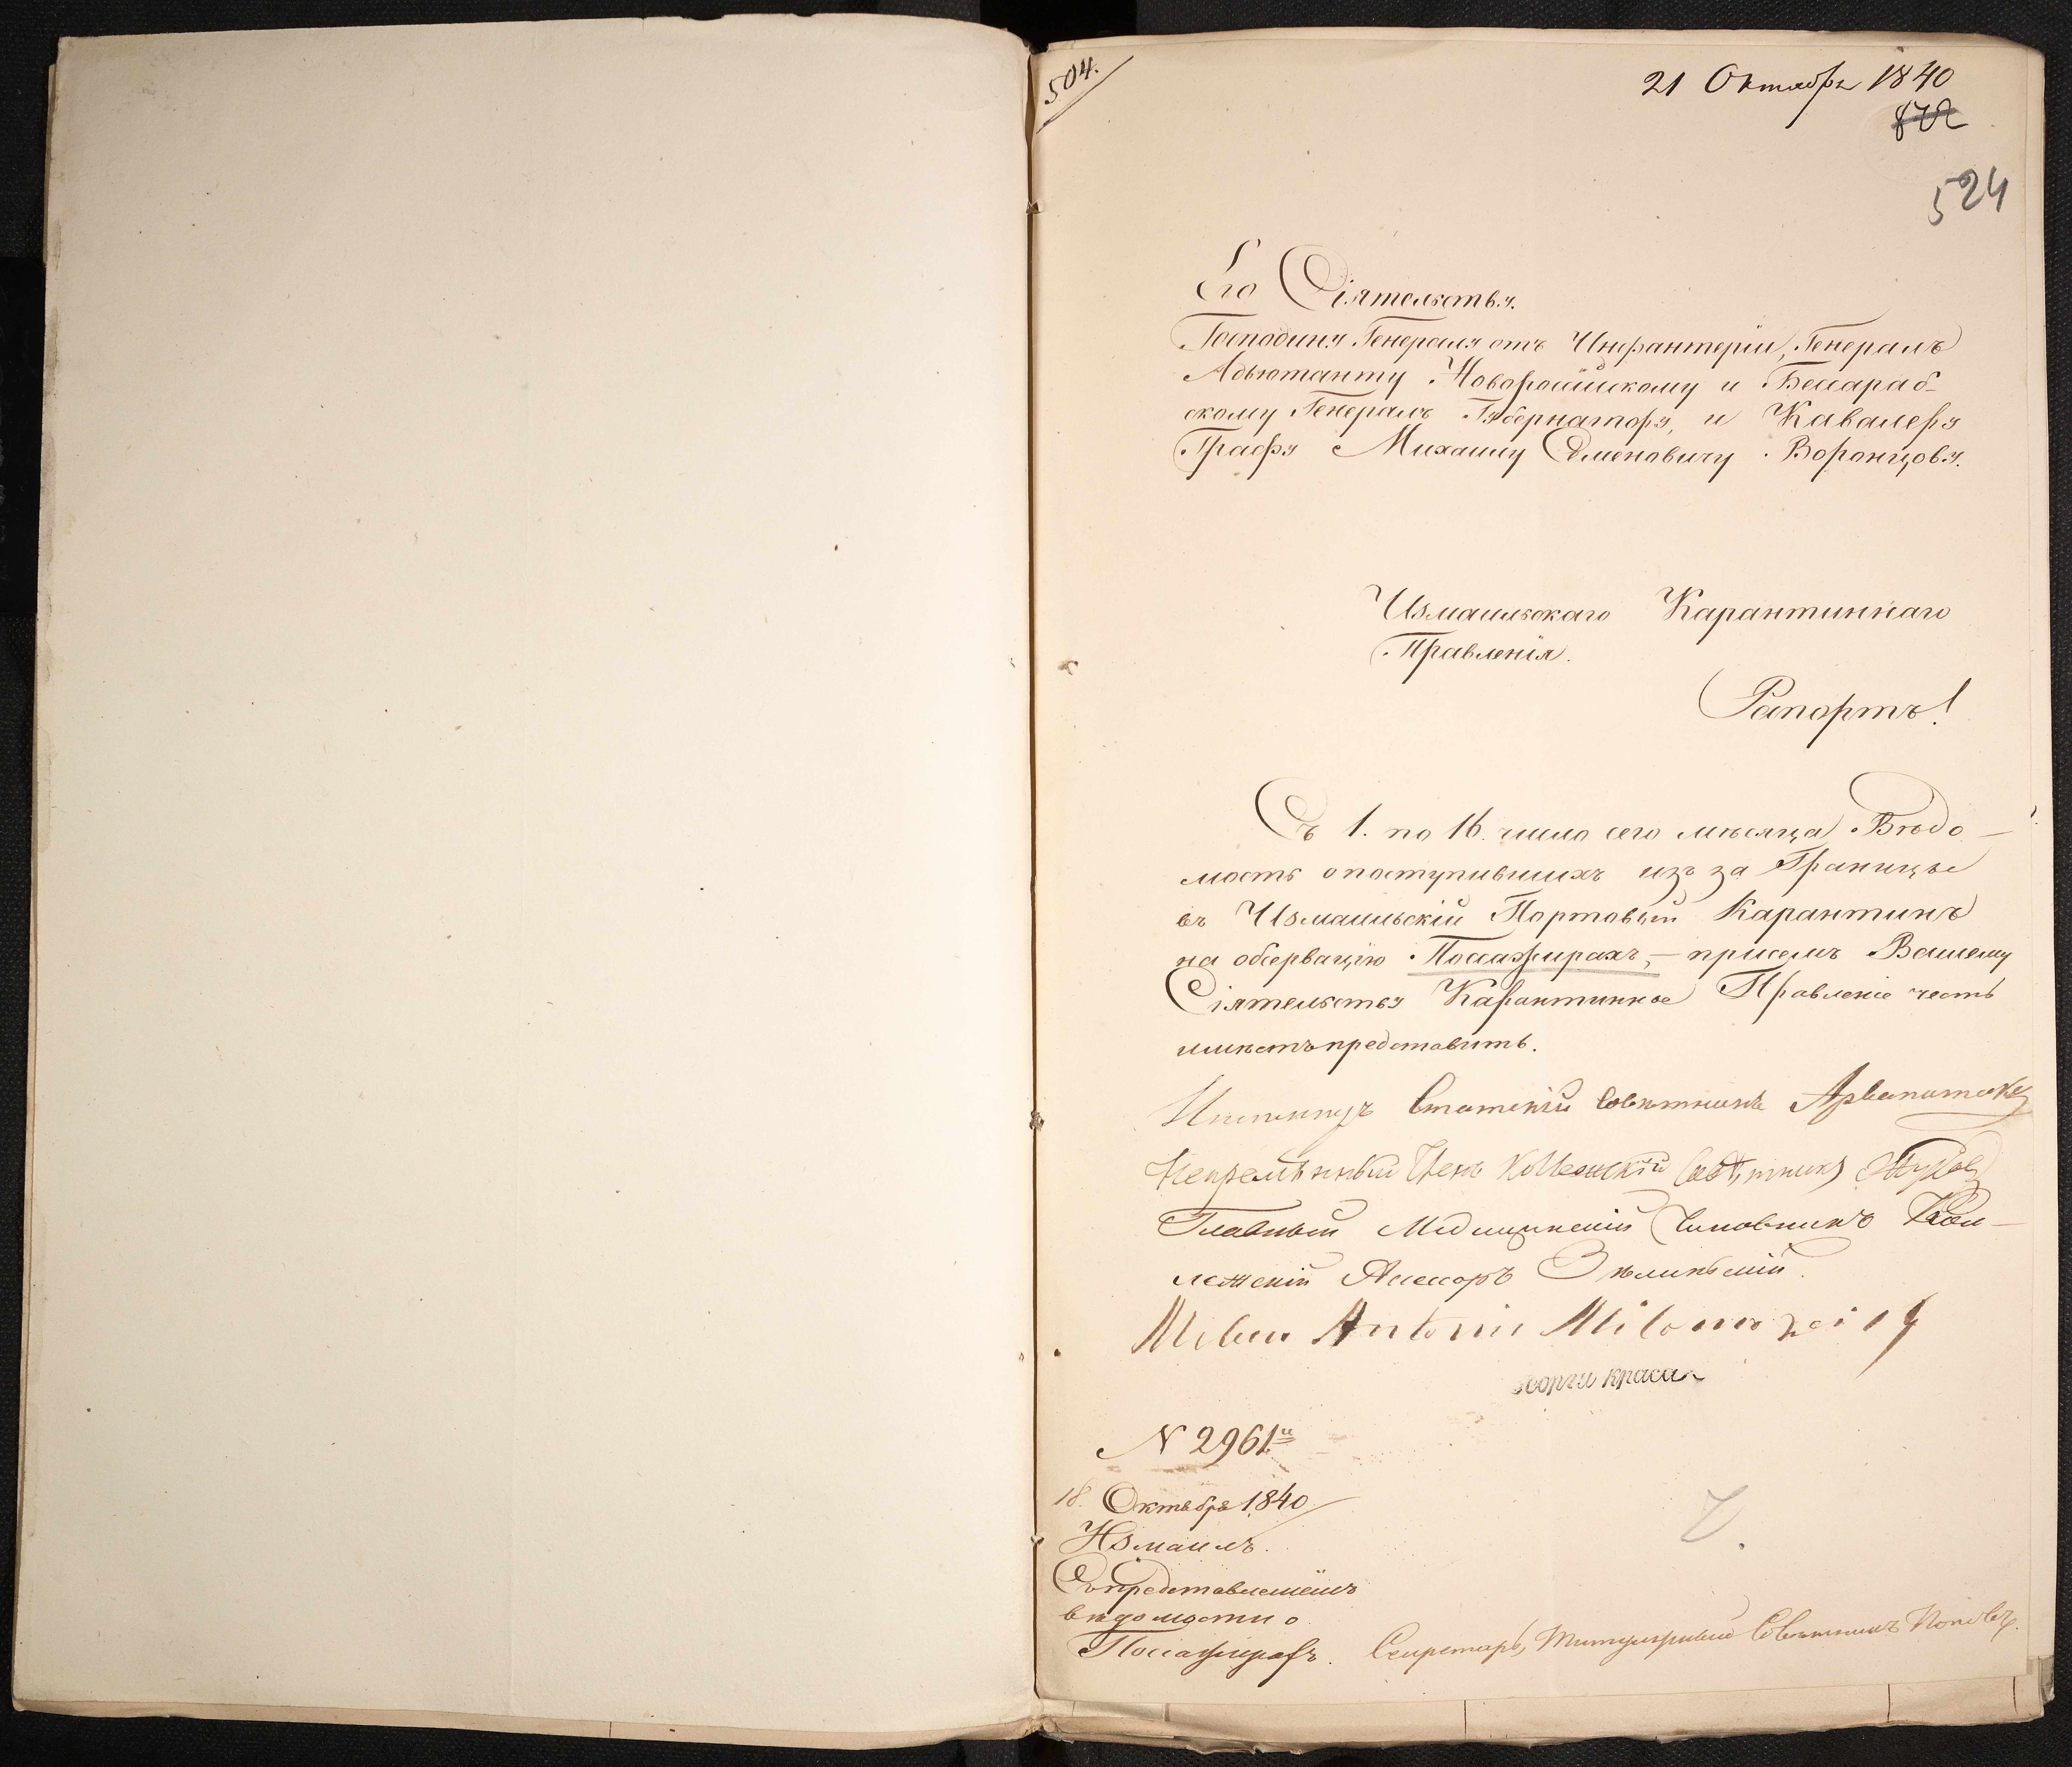 504.
21 Октября 1840
872
524
Его Сіятельству.
Господину Генералу отъ Инфантеріи, Генералъ
Адьютанту Новороссійскому и Бессараб-
скому Генералъ Губернатору, и Кавалеру
Графу Михаилу Семеновичу Воронцову.
Измаильскаго Карантиннаго
Правленія.
Рапортъ!
Съ 1. по 16. число сего мѣсяца Вѣдо-
мость о поступившихъ изъ за Границы
въ Измаильскій Портовый Карантинъ
на обсервацію Пассажирахъ,- присемъ Вашему
Сіятельству Карантинное Правленіе честь
имѣетъ представить.
Статскій Совѣтникъ
Непремѣнный Членъ Коллежскій Совѣтникъ
Главный Медицинскій Чиновникъ Кол-
лежскій Асессоръ
Antonio
краса
N 2961й
18. Октября 1840
Измаилъ.
Съ представленіемъ
вѣдомости о
Пассажирахъ.
Секретарь, Титулярный Совѣтникъ Поповъ.